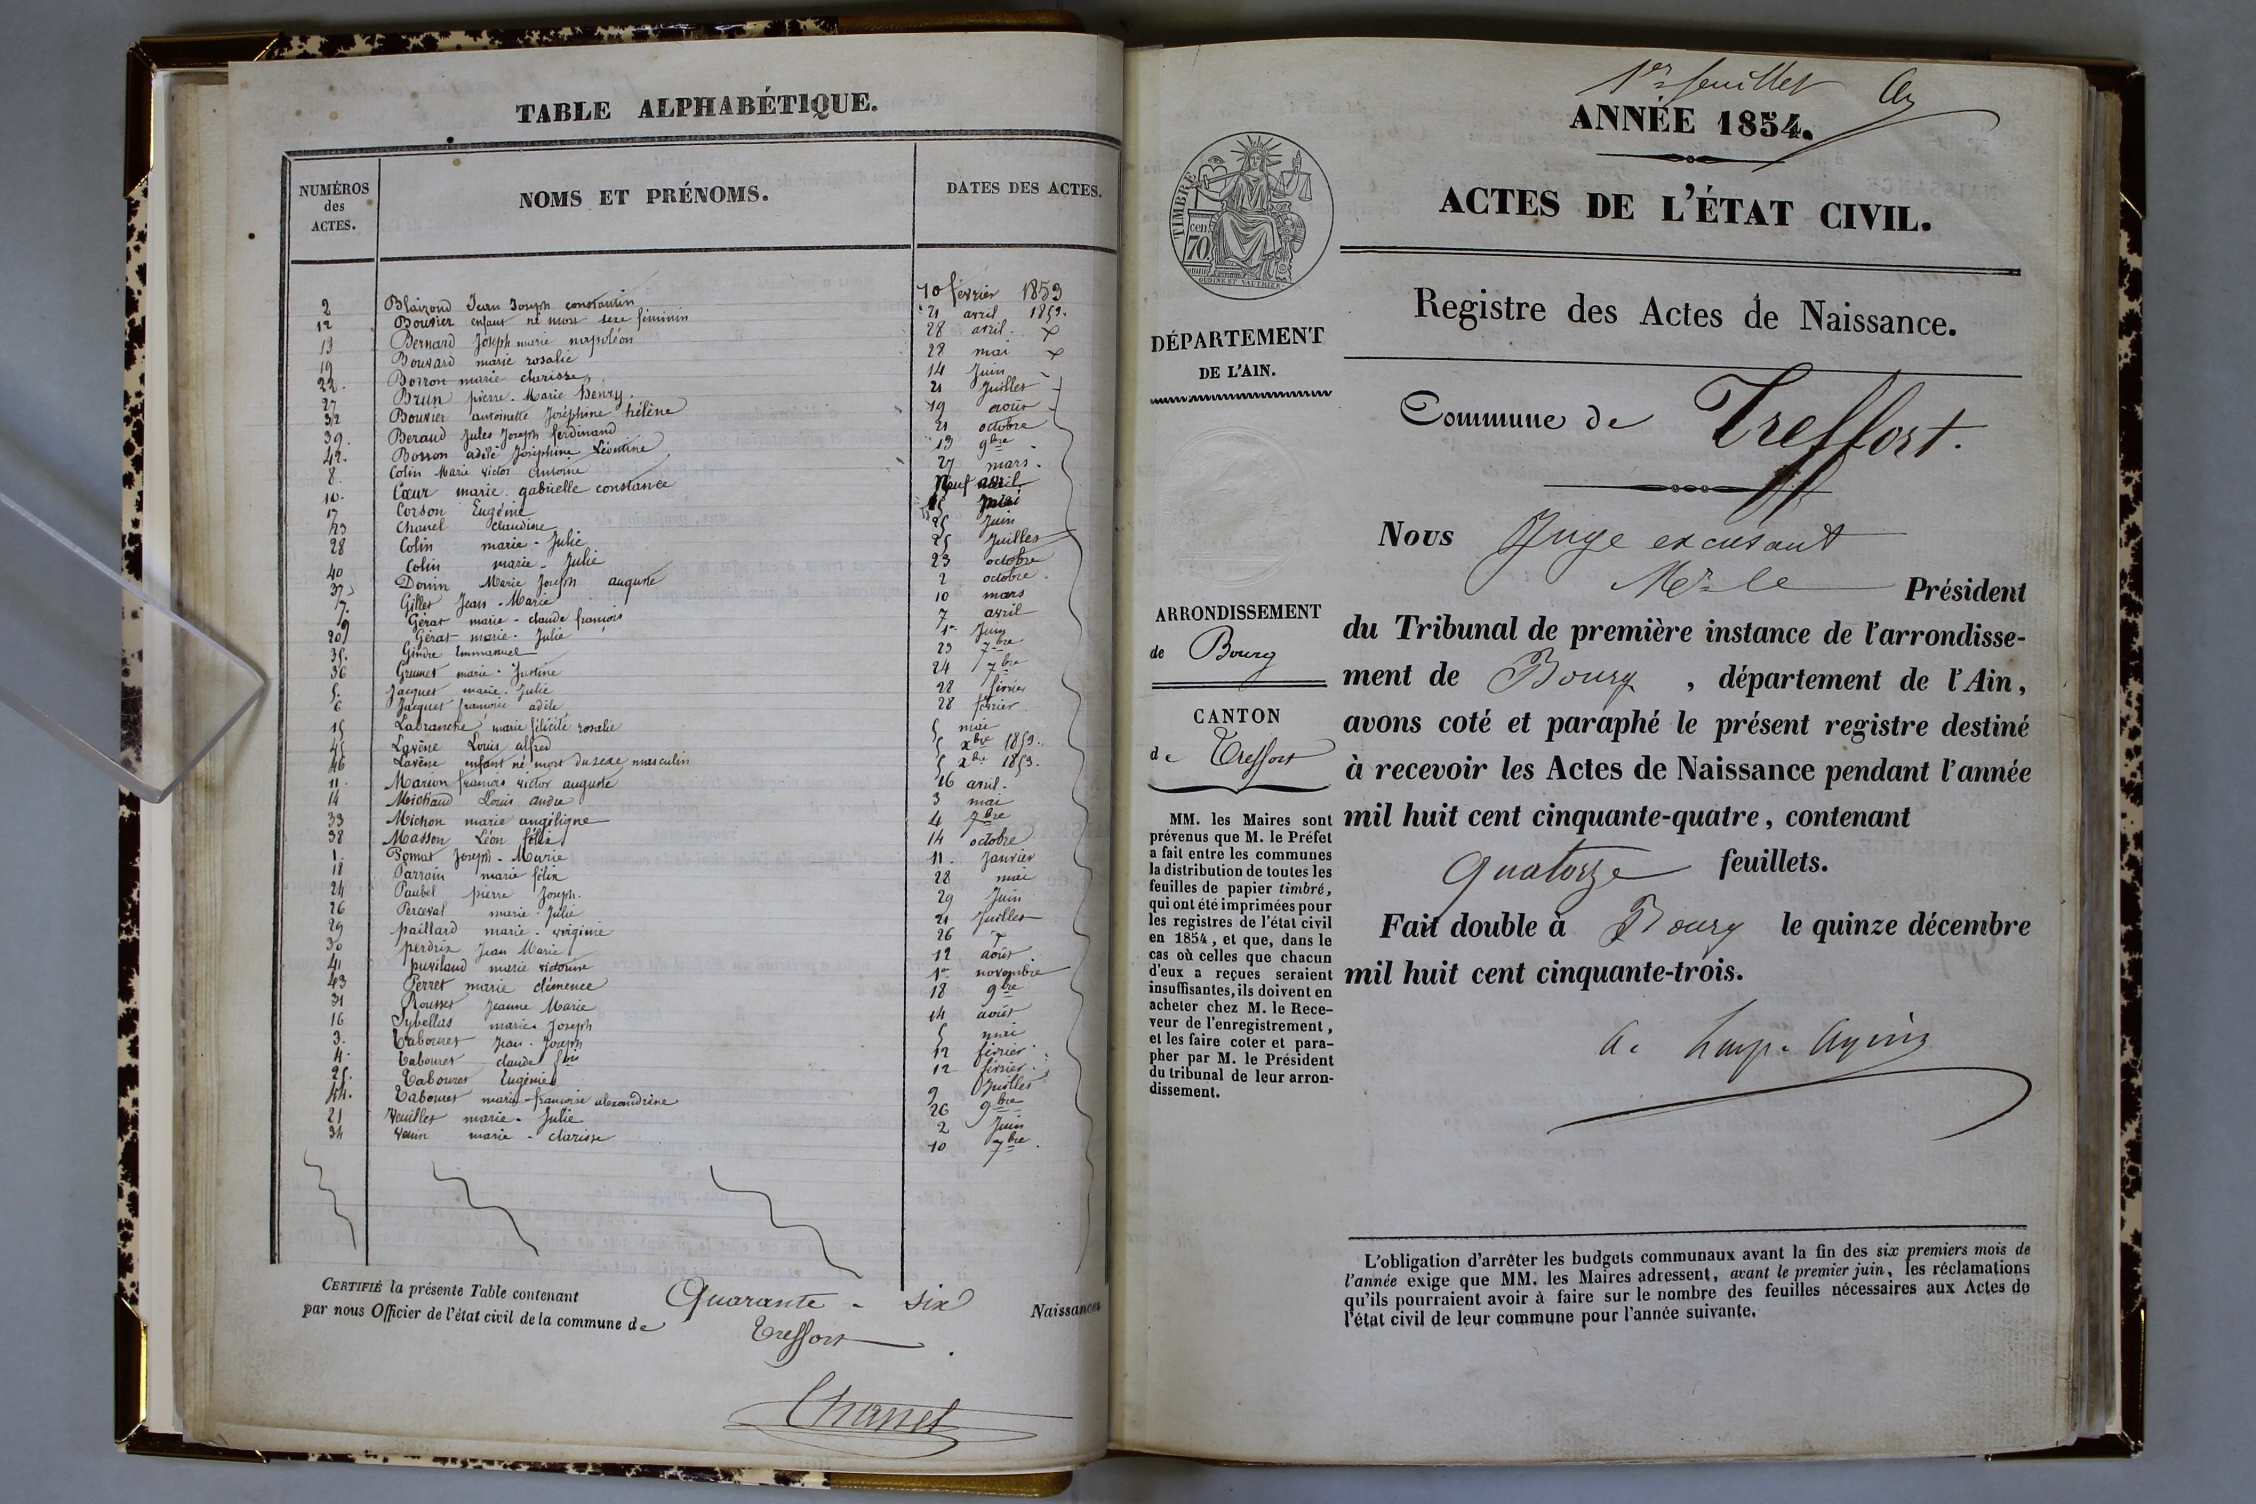 TABLE ALPHABÉTIQUE.
NUMÉROS des ACTES. NOMS ET PRÉNOMS. DATES DES ACTES.
2 Blaizond Jean Joseph constantin 10 février 1853
12 Bouvier enfant né mort sexe féminin 21 avril 1853.
13 Bernard Joseph marie napoléon 28 avril.
19 Bouvard marie rosalie 28 mai
22. Borron marie clarisse 14 Juin
27 Brun pierre. Marie henry. 21 Juillet
32 Bouvier antoinette Joséphine hélène 19 août
39. Beraud Jules Joseph ferdinand 21 octobre
42. Borron adèle Joséphine Léontine 13 9bre
8. Colin Marie victor antoine 27 mars.
10. Cœur marie. gabrielle constance Neuf avril
17 Corson Eugénie 15 mai
23 Chanel claudine 25 Juin
28 Colin marie - Julie 25 Juillet
40 Colin marie - Julie 23 octobre
37 Donin Marie Joseph auguste 2 octobre.
7. Gillet Jean - Marie 10 mars
9 Gérat marie - claude françois 7 avril
20 Gérat marie. Julie 1er Juin
35. Gindre Emmanuel 23 7bre
36 Grumet marie. Justine 24 7bre
5. Jacquet marie. Julie 28 février
6 Jacquet françoise adèle 28 février
15 Labranche marie félicité rosalie 5 mai
45 Lavêne Louis alfred 5 xbre 1853.
46 Lavêne enfant né mort du sexe masculin 5 xbre 1853.
11. Marion françois victor auguste 16 avril.
14 Michaud Louis andre 3 mai
33 Michon marie angélique 4 7bre
38 Masson Léon félix 14 octobre
1. Pomat Joseph - Marie 11. Janvier
18 Parrain marie félix 28 mai
24 Paubel pierre Joseph. 29 Juin
26 Perceval marie. Julie 21 Juillet
29 paillard marie - virginie 26
30 perdrix Jean Marie 12 août
41 puvilaud marie victorine 1er novembre
43 Perret marie clémence 18 9bre
31 Rousset Jeanne Marie 14 août
16 Sybellas marie. Joseph 5 mai
3. Tabouret Jean. Joseph 12 février
4. Tabouret claude fois 12 février.
25. Tabouret Eugénie 9 Juillet
44. Tabouret marie - françoise alexandrine 26 9bre
21 Veuillet marie. Julie 2 Juin
34 marie - clarisse 10 7bre.
CERTIFIÉ la présente Table contenant Quarante - six Naissances
par nous Officier de l'état civil de la commune de Treffort.
Chanel
1er feuillet
ANNÉE 1854.
ACTES DE L'ÉTAT CIVIL.
Registre des Actes de Naissance.
Commune de Treffort.
TIMBRE
70 cen
DÉPARTEMENT
DE L'AIN.
ARRONDISSEMENT
de Bourg
CANTON
de Treffort
MM. les Maires sont
prévenus que M. le Préfet
a fait entre les communes
la distribution de toutes les
feuilles de papier timbré,
qui ont été imprimées pour
les registres de l'état civil
en 1854, et que, dans le
cas où celles que chacun
d'eux a reçues seraient
insuffisantes, ils doivent en
acheter chez M. le Rece-
veur de l'enregistrement,
et les faire coter et para-
pher par M. le Président
du tribunal de leur arron-
dissement.
Nous Juge excusant
Mr le Président
du Tribunal de première instance de l'arrondisse-
ment de Bourg, département de l'Ain,
avons coté et paraphé le présent registre destiné
à recevoir les Actes de Naissance pendant l'année
mil huit cent cinquante-quatre, contenant
quatorze feuillets.
Fait double à Bourg le quinze décembre
mil huit cent cinquante-trois.
L'obligation d'arrêter les budgets communaux avant la fin des six premiers mois de
l'année exige que MM. les Maires adressent, avant le premier juin, les réclamations
qu'ils pourraient avoir à faire sur le nombre des feuilles nécessaires aux Actes de
l'état civil de leur commune pour l'année suivante.